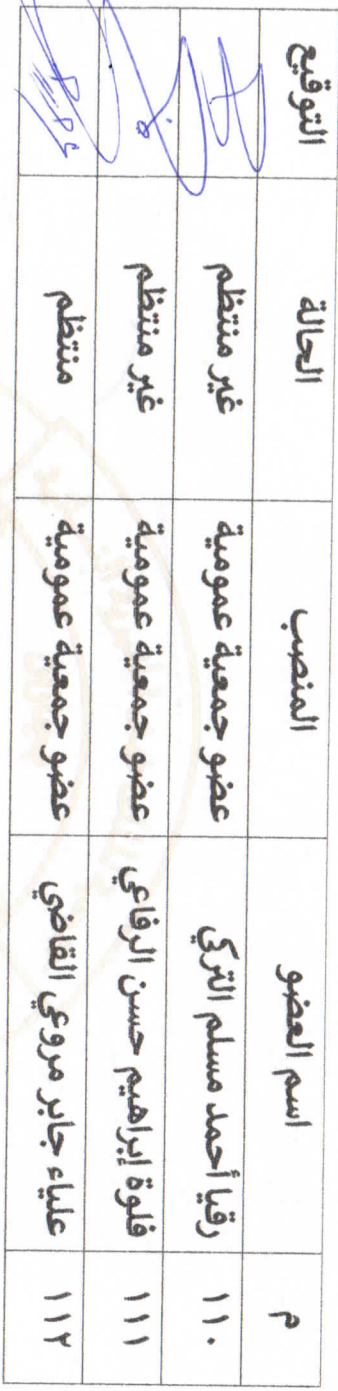 م اسم العضو المنصب الحالة التوقيع
١١٠ رقيا أحمد مسلم التركي عضو جمعية عمومية غير منتظم
١١١ فلوة إبراهيم حسن الرفاعي عضو جمعية عمومية غير منتظم
١١٢ علياء جابر مروعي القاضي عضو جمعية عمومية منتظم